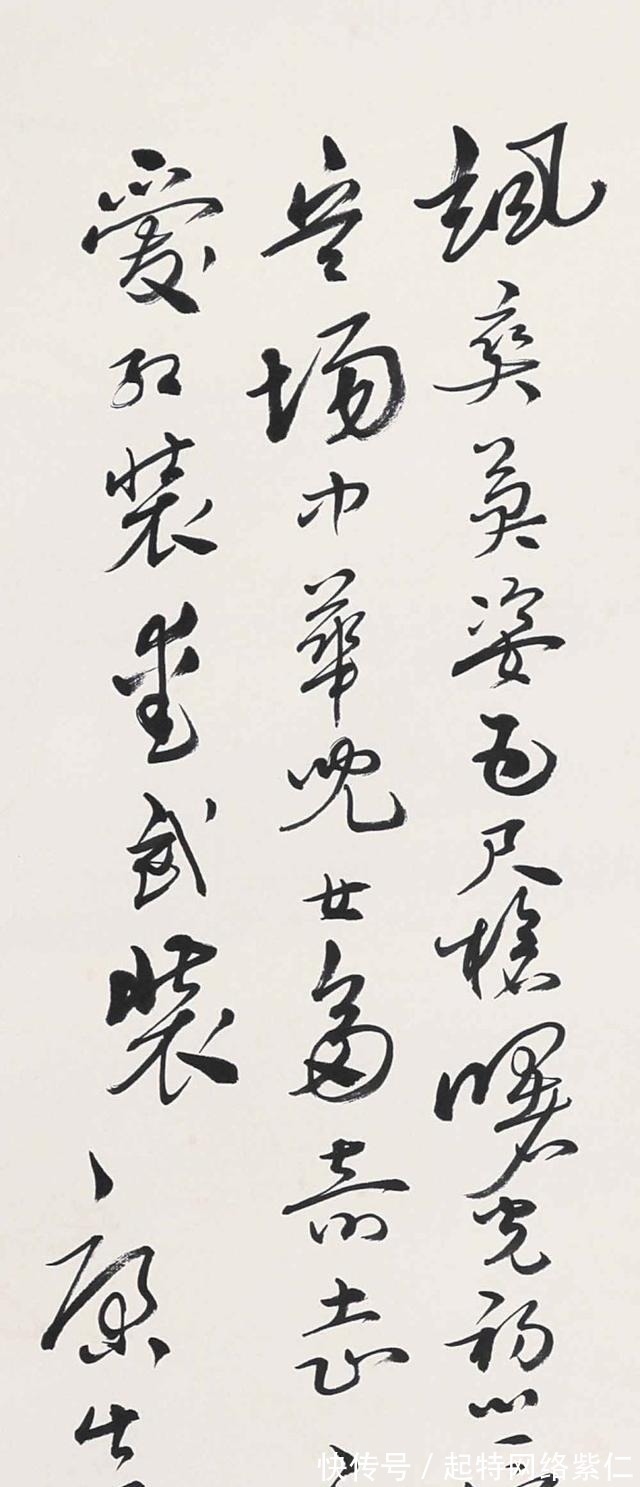 颯爽英姿五尺槍曙光初照
兵場中華兒女多奇志
愛紅裝愛武裝 康生
快传号 / 起特网络紫仁